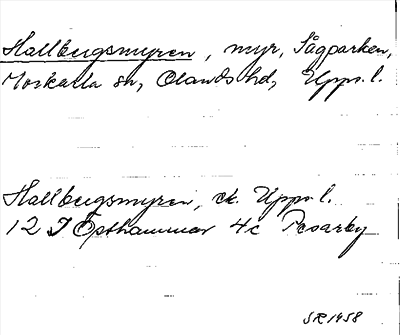 Hallbergsmyren, myr, Sågparken,
Morkarla sn, Olands hd, Upps. l.
Hallbergsmyren, ek. Upps l.
12 I Östhammar 4c Pesarby
SR 1958